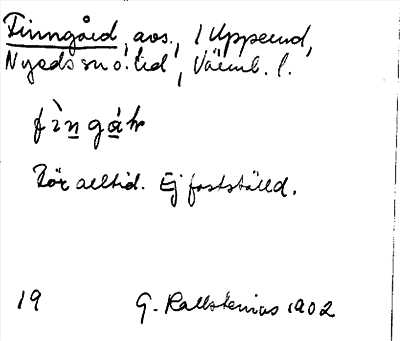 Finngård, avs., i Upperud,
Nyeds sn o. hd, Värml. l.
fìngár
Rör alltid. Ej fastställd.
19 G. Kallstenius 1902